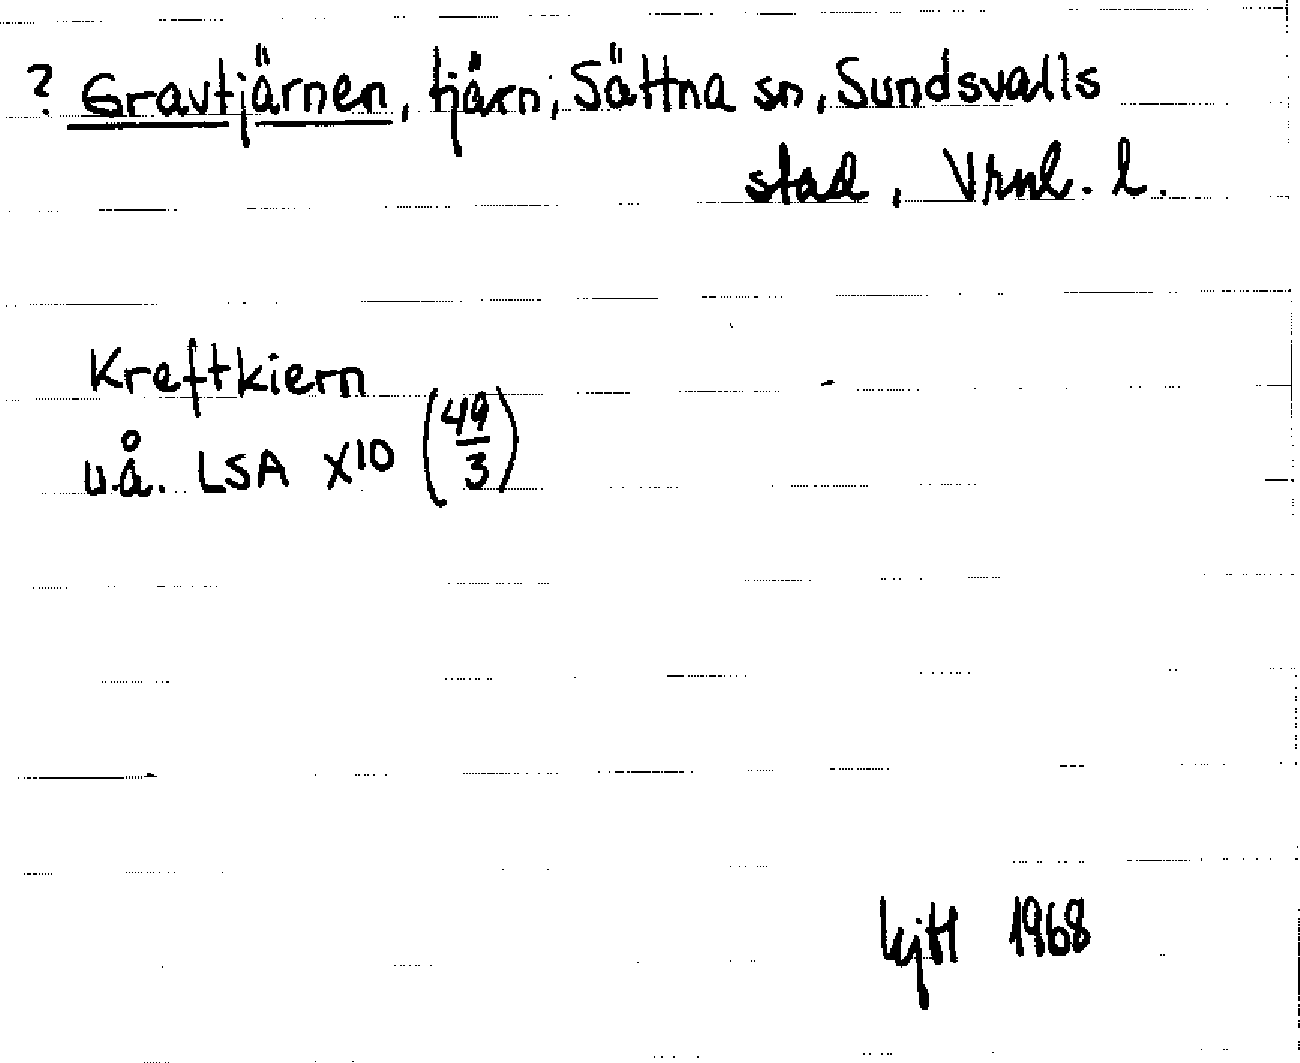 ? Gravtjärnen, tjärn, Sättna sn, Sundsvalls
stad, Vrnl. l.
Kreftkiern
u.å. LSA X10 (49/3)
1968